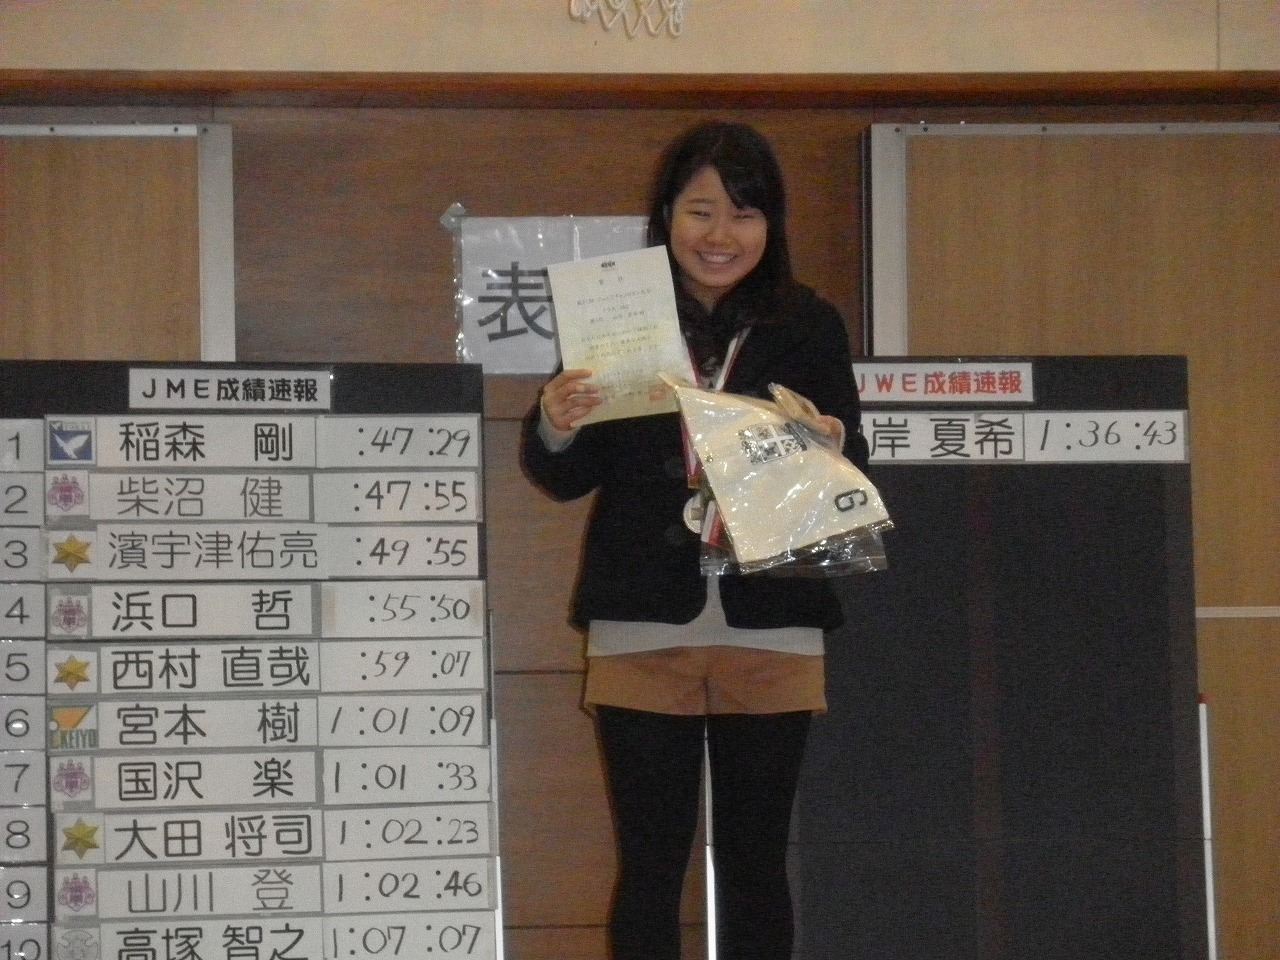 表
JME成績速報
1 稲森 剛 :47:29
2 柴沼 健 :47:55
3 濱宇津佑亮 :49:55
4 浜口 哲 :55:50
5 西村 直哉 :59:07
6 KEIYO 宮本 樹 1:01:09
7 国沢 楽 1:01:33
8 大田 将司 1:02:23
9 山川 登 1:02:46
10 高塚 智之 1:07:07
JWE成績速報
岸 夏希 1:36:43
賞状
6